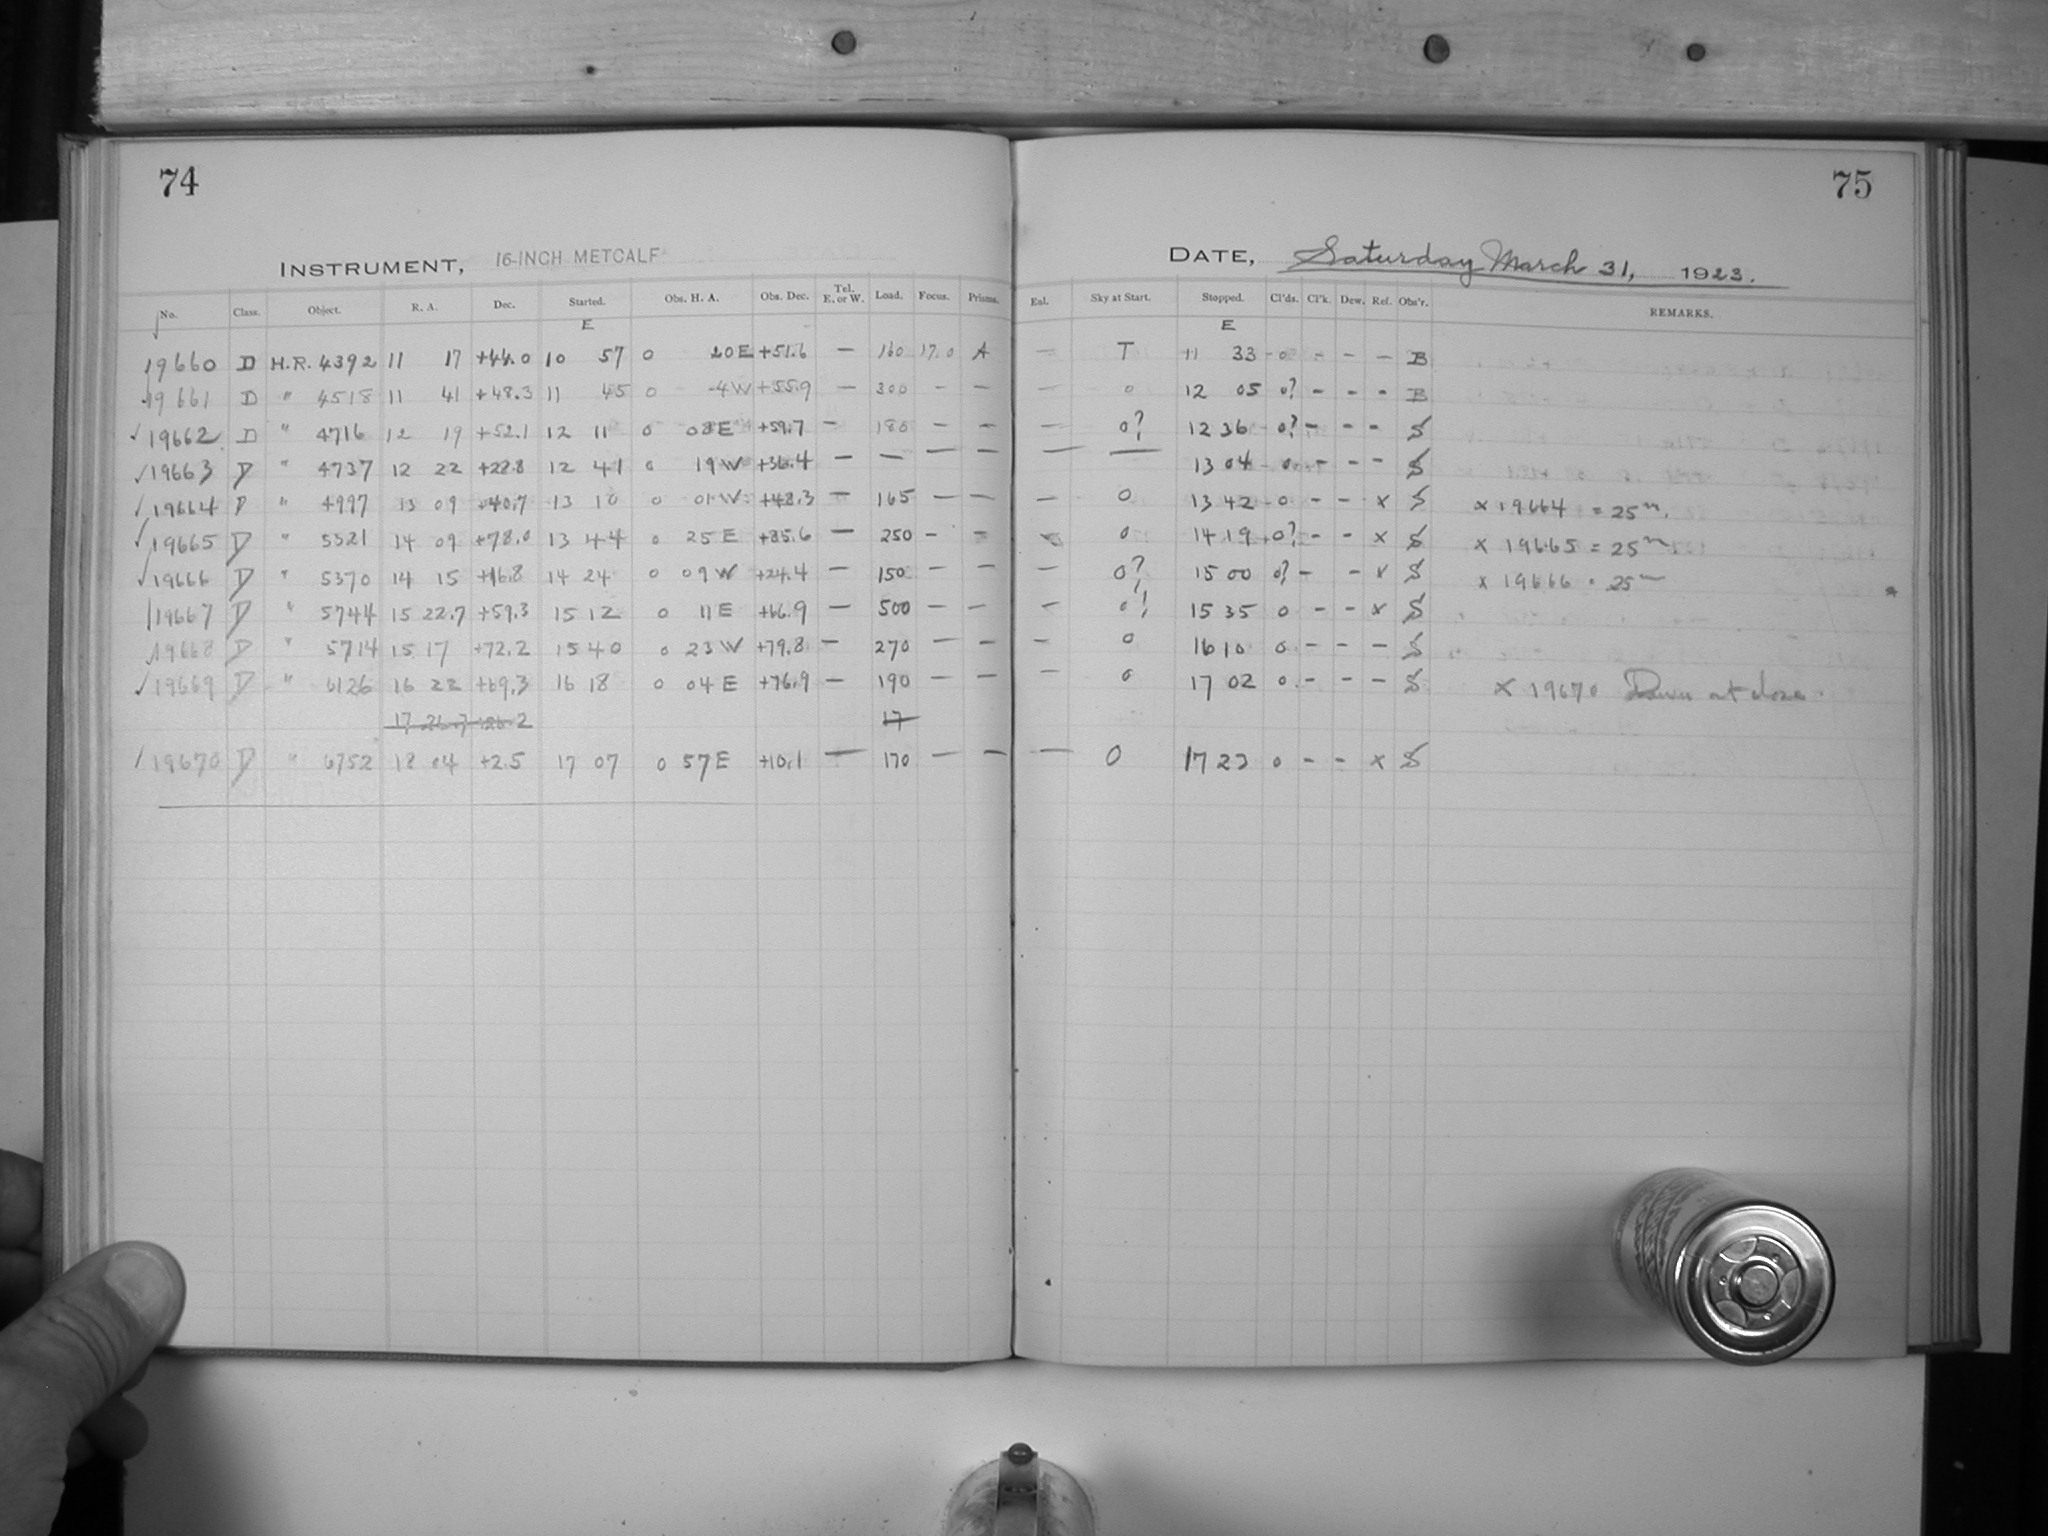 74
75
INSTRUMENT, 16-INCH METCALF
DATE, Saturday March 31, 1923.
No. Class. Object. R. A. Dec. Started. Obs. H. A. Obs. Dec. Tel. E. or W. Load. Focus. Prisms. Eal. Sky at Start. Stopped. Cl'ds. Cl'k. Dew. Ref. Obs'r. REMARKS.
E E
19660 D H.R. 4392 11 17 +44.0 10 57 0 20 E +51.6 — 160 17.0 A — T 11 33 0 - - - B
19661 D " 4518 11 41 +48.3 11 45 0 4 W +55.9 — 300 - - — 0 12 05 0? - - - B
✓ 19662 D " 4716 12 19 +52.1 12 11 0 08 E +59.7 — 180 - - — 0? 12 36 0? - - - S
✓ 19663 D " 4737 12 22 +28.8 12 41 0 19 W +36.4 — — - - — — 13 04 0 - - - S
✓ 19664 D " 4997 13 09 +40.7 13 10 0 01 W +48.3 — 165 - - — 0 13 42 0 - - x S x 19664 = 25m.
✓ 19665 D " 5321 14 09 +78.0 13 44 0 25 E +85.6 — 250 - - — 0 14 19 0? - - x S x 19665 = 25m
✓ 19666 D " 5370 14 15 +16.8 14 24 0 09 W +24.4 — 150 - - — 0? 15 00 0? - - x S x 19666 = 25m
19667 D " 5744 15 22.7 +59.3 15 12 0 11 E +66.9 — 500 - - — 0! 15 35 0 - - x S
✓ 19668 D " 5714 15 17 +72.2 15 40 0 23 W +79.8 — 270 - - — 0 16 10 0 - - - S
✓ 19669 D " 6126 16 22 +69.3 16 18 0 04 E +76.9 — 190 - - — 0 17 02 0 - - - S x 19670 Dawn at close.
17
✓ 19670 D " 6752 18 04 +2.5 17 07 0 57 E +10.1 — 170 - - — 0 17 23 0 - - x S